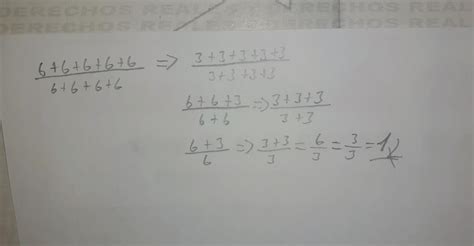 DERECHOS REALE
ERECHOS REAL
(6+6+6+6+6)/(6+6+6+6) => (3+3+3+3+3)/(3+3+3+3)
(6+6+3)/(6+6) => (3+3+3)/(3+3)
(6+3)/6 => (3+3)/3 = 6/3 = 3/3 = 1